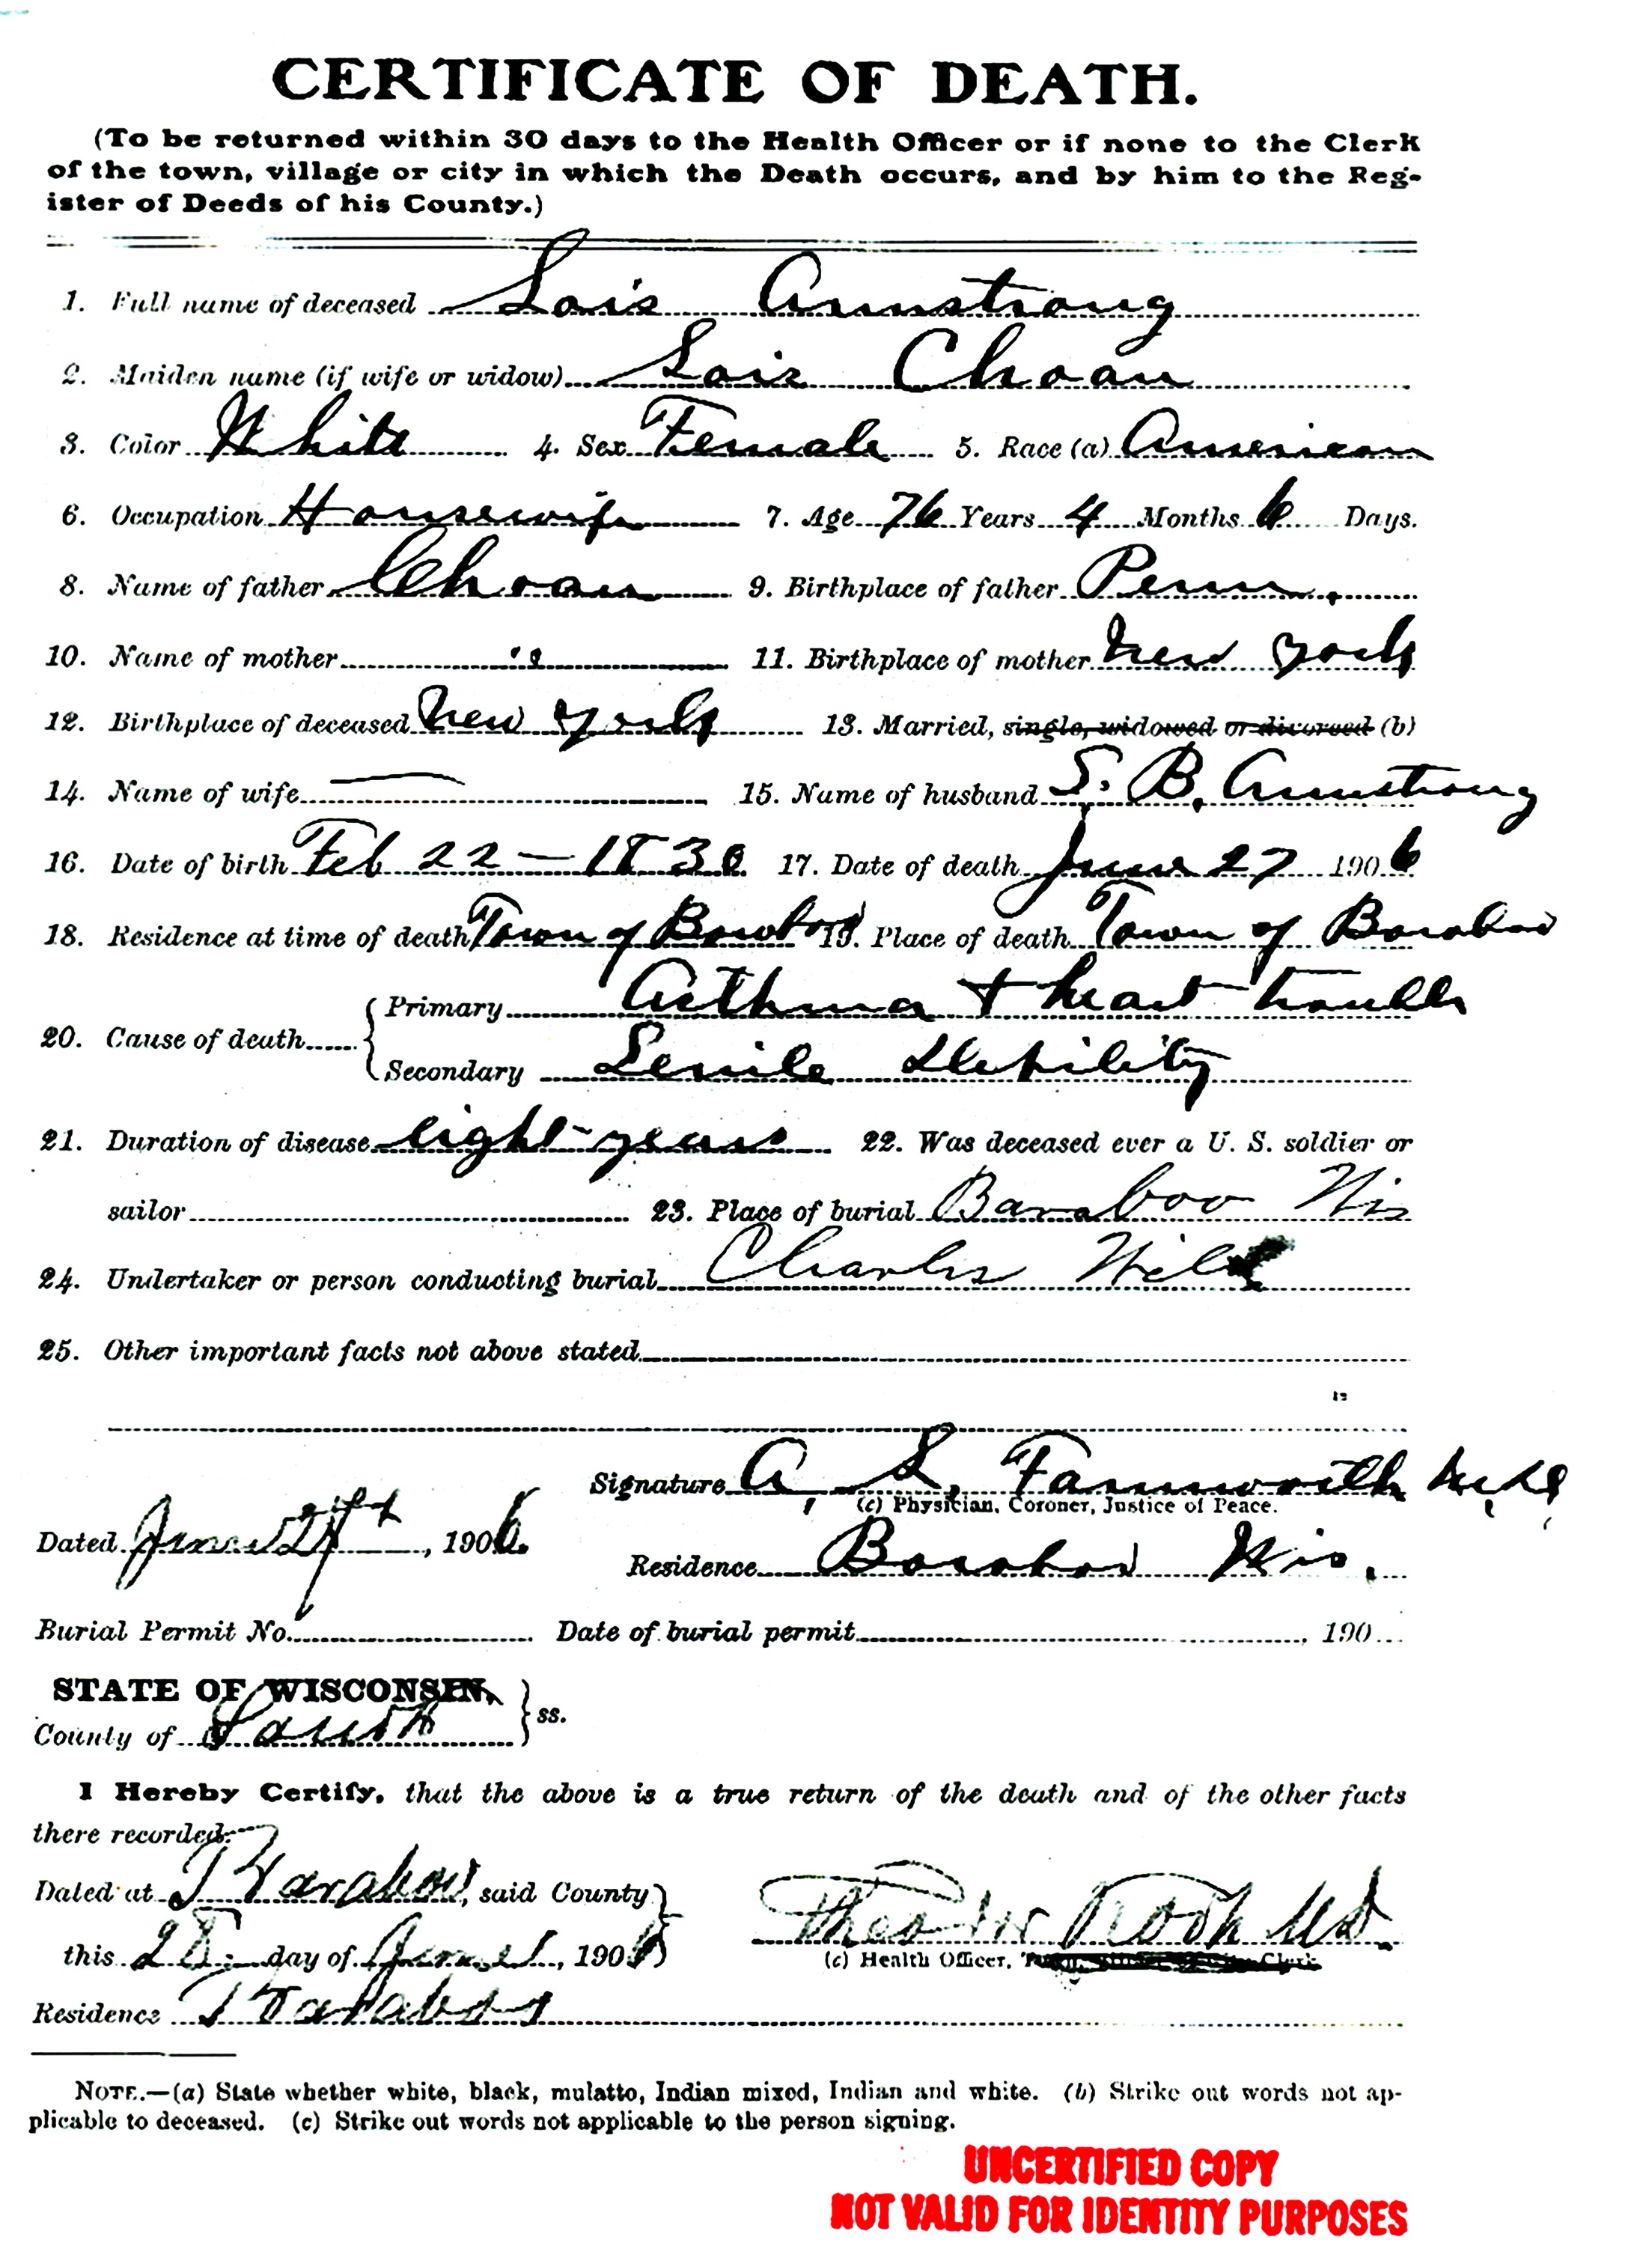 CERTIFICATE OF DEATH.
(To be returned within 30 days to the Health Officer or if none to the Clerk
of the town, village or city in which the Death occurs, and by him to the Reg-
ister of Deeds of his County.)
1. Full name of deceased Lois Armstrong
2. Maiden name (if wife or widow) Lois Choan
3. Color White 4. Sex Female 5. Race (a) American
6. Occupation Housewife 7. Age 76 Years 4 Months 6 Days.
8. Name of father Choan 9. Birthplace of father Penn.
10. Name of mother " 11. Birthplace of mother New York
12. Birthplace of deceased New York 13. Married, single, widowed or divorced (b)
14. Name of wife — 15. Name of husband S. B. Armstrong
16. Date of birth Feb 22 — 1830 17. Date of death June 27 1906
18. Residence at time of death Town of Baraboo 19. Place of death Town of Baraboo
20. Cause of death { Primary Asthma + heart trouble
Secondary Senile Debility
21. Duration of disease eight years 22. Was deceased ever a U. S. soldier or
sailor 23. Place of burial Baraboo Wis
24. Undertaker or person conducting burial Charles Wild
25. Other important facts not above stated
Signature A. L. Farnsworth M.D.
(c) Physician, Coroner, Justice of Peace.
Dated June 27th, 1906. Residence Baraboo Wis.
Burial Permit No. Date of burial permit 190
STATE OF WISCONSIN,
County of Sauk } ss.
I Hereby Certify, that the above is a true return of the death and of the other facts
there recorded.
Dated at Baraboo, said County
this 28 day of June, 1906
(c) Health Officer, Clerk
Residence Baraboo
NOTE.—(a) State whether white, black, mulatto, Indian mixed, Indian and white. (b) Strike out words not ap-
plicable to deceased. (c) Strike out words not applicable to the person signing.
UNCERTIFIED COPY
NOT VALID FOR IDENTITY PURPOSES